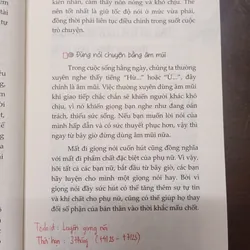 ễm, giúp cảm xúc thêm nồng và khó
thể nên tốt nhất là giữ tốc độ nói ở mức vừa phải,
đồng thời phải liên tục điều chỉnh trong suốt cuộc
trò chuyện.
Đừng nói chuyện bằng âm mũi
Trong cuộc sống hằng ngày, chúng ta thường
xuyên nghe thấy tiếng "Hừ..." hoặc "Ừ...", đây
chính là âm mũi. Việc thường xuyên dùng âm mũi
khi giao tiếp chắc chắn sẽ khiến người khác khó
chịu, vì nó khiến giọng bạn nghe như đang than
trách, thiếu sức sống và tiêu cực. Nếu bạn muốn
lời nói của mình hấp dẫn và có sức thuyết phục hơn, vậy thì
ngay từ bây giờ đừng dùng âm mũi nữa.
Giọng điệu mất đi nét cuốn hút cũng đồng nghĩa
với mất đi phẩm chất đặc biệt của phụ nữ. Vì vậy,
hỡi tất cả các bạn nữ, bắt đầu từ bây giờ, các bạn
hãy luyện cho mình một giọng nói hấp dẫn. Bởi
vì giọng nói đầy sức hút có thể tăng thêm sự tự tin
và khí chất cho phụ nữ, cũng có thể giúp họ thay
đổi số phận của bản thân vào thời khắc mấu chốt.
Todolist: Luyện giọng nói
Thời hạn: 3 tháng